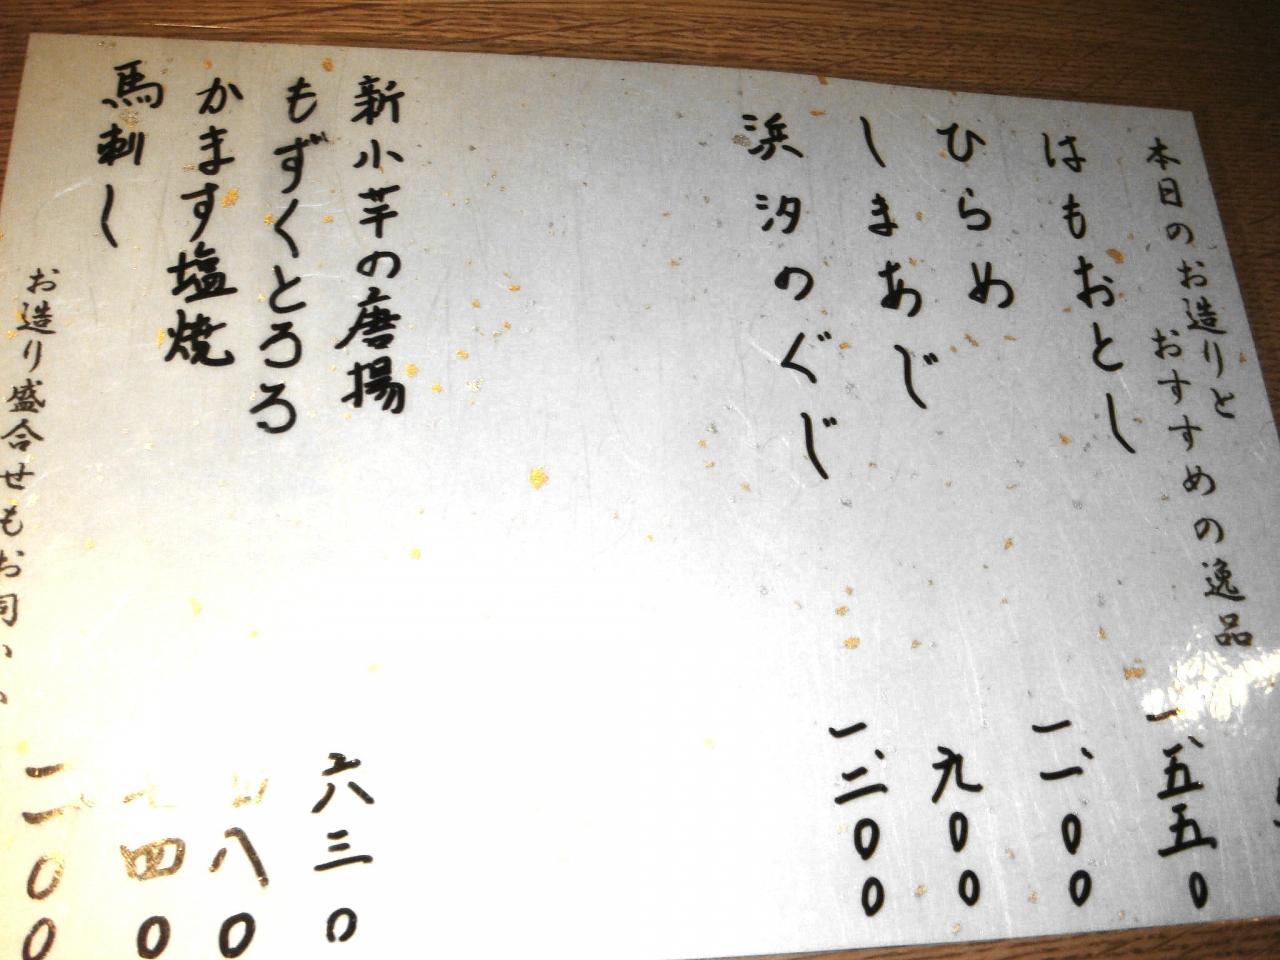 本日のお造りと
おすすめの逸品
はもおとし 一、五五０
ひらめ 一、一００
しまあじ 九００
浜汐のぐじ 一、二００
新小芋の唐揚 六三０
もずくとろろ 八０
かます塩焼 四０
馬刺し
お造り盛合せもお伺い